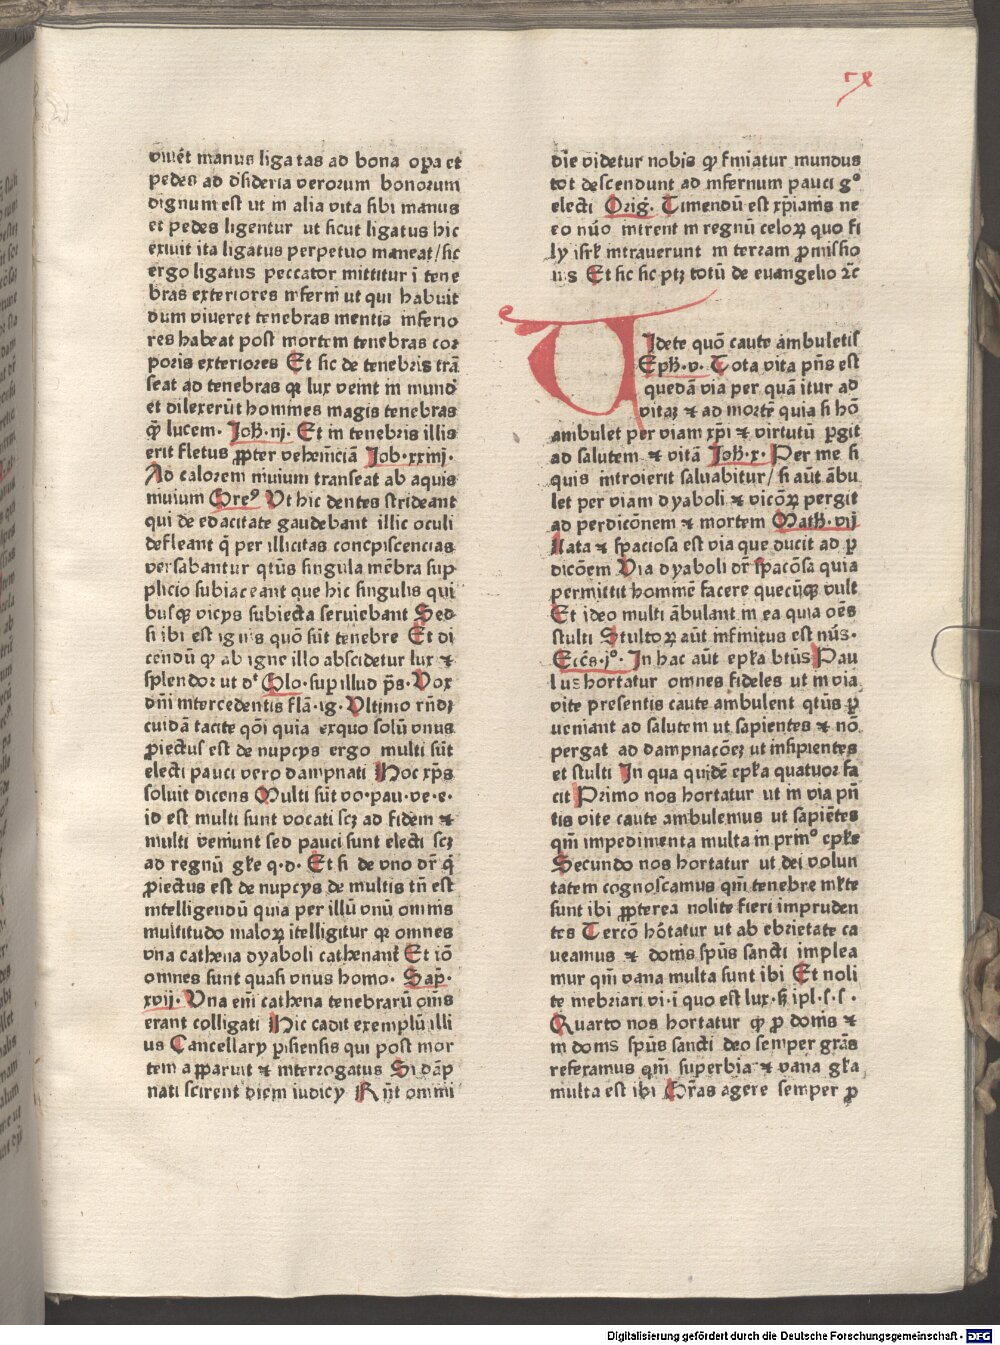 viuẽt manus liga tas ad bona oꝑa et
pedes ad dſideria verorum bonorum
dignum est ut in alia vita ſibi manus
et pedes ligentur ut ſicut ligatus hic
exiuit ita ligatus perpetuo maneat/ſic
ergo ligatus peccator mittitur ĩ tene
bras exteriores inferni ut qui habuit
dum viueret tenebras mentis inferio
res habeat post mortem tenebras cor
poris exteriores Et ſic de tenebris trã
ſeat ad tenebras qꝛ lux venit in mund̃
et dilexerũt homines magis tenebras
ꝙ lucem. Joħ.iij. Et in tenebris illis
erit fletus ꝓpter vehem̃ciã Job.xxiiij.
Ad calorem niuium tranſeat ab aquis
niuium Gre⁹ Ut hic dentes ſtrideant
qui de edacitate gaudebant illic oculi
defleant q̃ per illicitas concpiſcencias
verſabantur qtũs ſingula mẽbra ſup
plicio ſubiaceant que hic ſingulis qui
buſqꝫ vicijs ſubiecta ſeruiebant Sed
ſi ibi est ignis quõ ſũt tenebre Et di
cendũ ꝙ ab igne illo abſcidetur lux ⁊
ſplendor ut dᵗ Glo.ſup illud p̃s. Vox
dñi intercedentis flã.ig. Vltimo rñdꝫ
cuidã tacite qõi quia exquo ſolũ vnus
ꝓiectuſ est de nupcijs ergo multi ſũt
electi pauci vero dampnati Hoc xp̃s
ſoluit dicens Multi ſũt vo.pau.ve.e.
id est multi ſunt vocati ſcꝫ ad fidem ⁊
multi veniunt ſed pauci ſunt electi ſcꝫ
ad regnũ gl̃e q.d. Et ſi de vno dr̃ q̃
ꝓiectus est de nupcijs de multis tñ est
intelligendũ quia per illũ vnũ omnis
multitudo maloꝝ ĩtelligitur qꝛ omnes
vna cathena dyaboli cathenant̃ Et iõ
omnes ſunt quaſi vnus homo. Sap̃.
xvij. Vna em̃ cathena tenebrarũ om̃s
erant colligati Hic cadit exemplũ illi
us Cancellarij piſienſis qui post mor
tem apparuit ⁊ interrogatus Si dãp
nati ſcirent diem iudicij Rñt omni
die videtur nobis ꝙ finiatur mundus
tot deſcendunt ad infernum pauci gᵒ
electi Orig̃. Timendũ est xp̃ianis ne
eo nũo intrent in regnũ celoꝝ quo fi
lij iſrł intrauerunt in terram ꝓmiſſio
nis Et ſic ſic ptꝫ totũ de euangelio ⁊c̃
Uldete quõ caute ambuletiſ
Epħ.v. Tota vita pñs est
quedã via per quã itur ad
vitaꝫ ⁊ ad mortẽ quia ſi hõ
ambulet per viam xp̃i ⁊ virtutũ ꝑgit
ad ſalutem ⁊ vitã Joħ.x. Per me ſi
quis introierit ſaluabitur/ſi aũt ãbu
let per viam dyaboli ⁊ vicõꝝ pergit
ad perdicõnem ⁊ mortem Math.vij
Lata ⁊ ſpacioſa est via que ducit ad ꝑ
dicõem Via dyaboli dr̃ ſpacõſa quia
permittit hominẽ facere quecũqꝫ vult
Et ideo multi ãbulant in ea quia oẽs
ſtulti Stultoꝝ aũt infinitus est nũs.
Ecc̃s.jᵒ. In hac aũt epl̃a btũs Pau
lus hortatur omnes fideles ut in via
vite preſentis caute ambulent qtũs ꝑ
ueniant ad ſalutem ut ſapientes ⁊ nõ
pergat ad dampnacõeꝫ ut inſipientes
et ſtulti In qua quidẽ epl̃a quatuor fa
cit Primo nos hortatur ut in via pñ
tis vite caute ambulemus ut ſapiẽtes
qm̃ impedimenta multa in primᵒ epl̃e
Secundo nos hortatur ut dei volun
tatem cognoſcamus qm̃ tenebre ml̃te
ſunt ibi ꝓpterea nolite fieri impruden
tes Tercõ hõtatur ut ab ebrietate ca
ueamus ⁊ donis ſpũs ſancti implea
mur qm̃ vana multa ſunt ibi Et noli
te inebriari vi.ĩ quo est lux.ſꝫ ipl.ſ.ſ.
Quarto nos hortatur ꝙ ꝓ donis ⁊
in donis ſpũs ſancti deo ſemper grãs
referamus qm̃ ſuperbia ⁊ vana gl̃ia
multa est ibi Gr̃as agere ſemper ꝓ
Digitalisierung gefördert durch die Deutsche Forschungsgemeinschaft - DFG